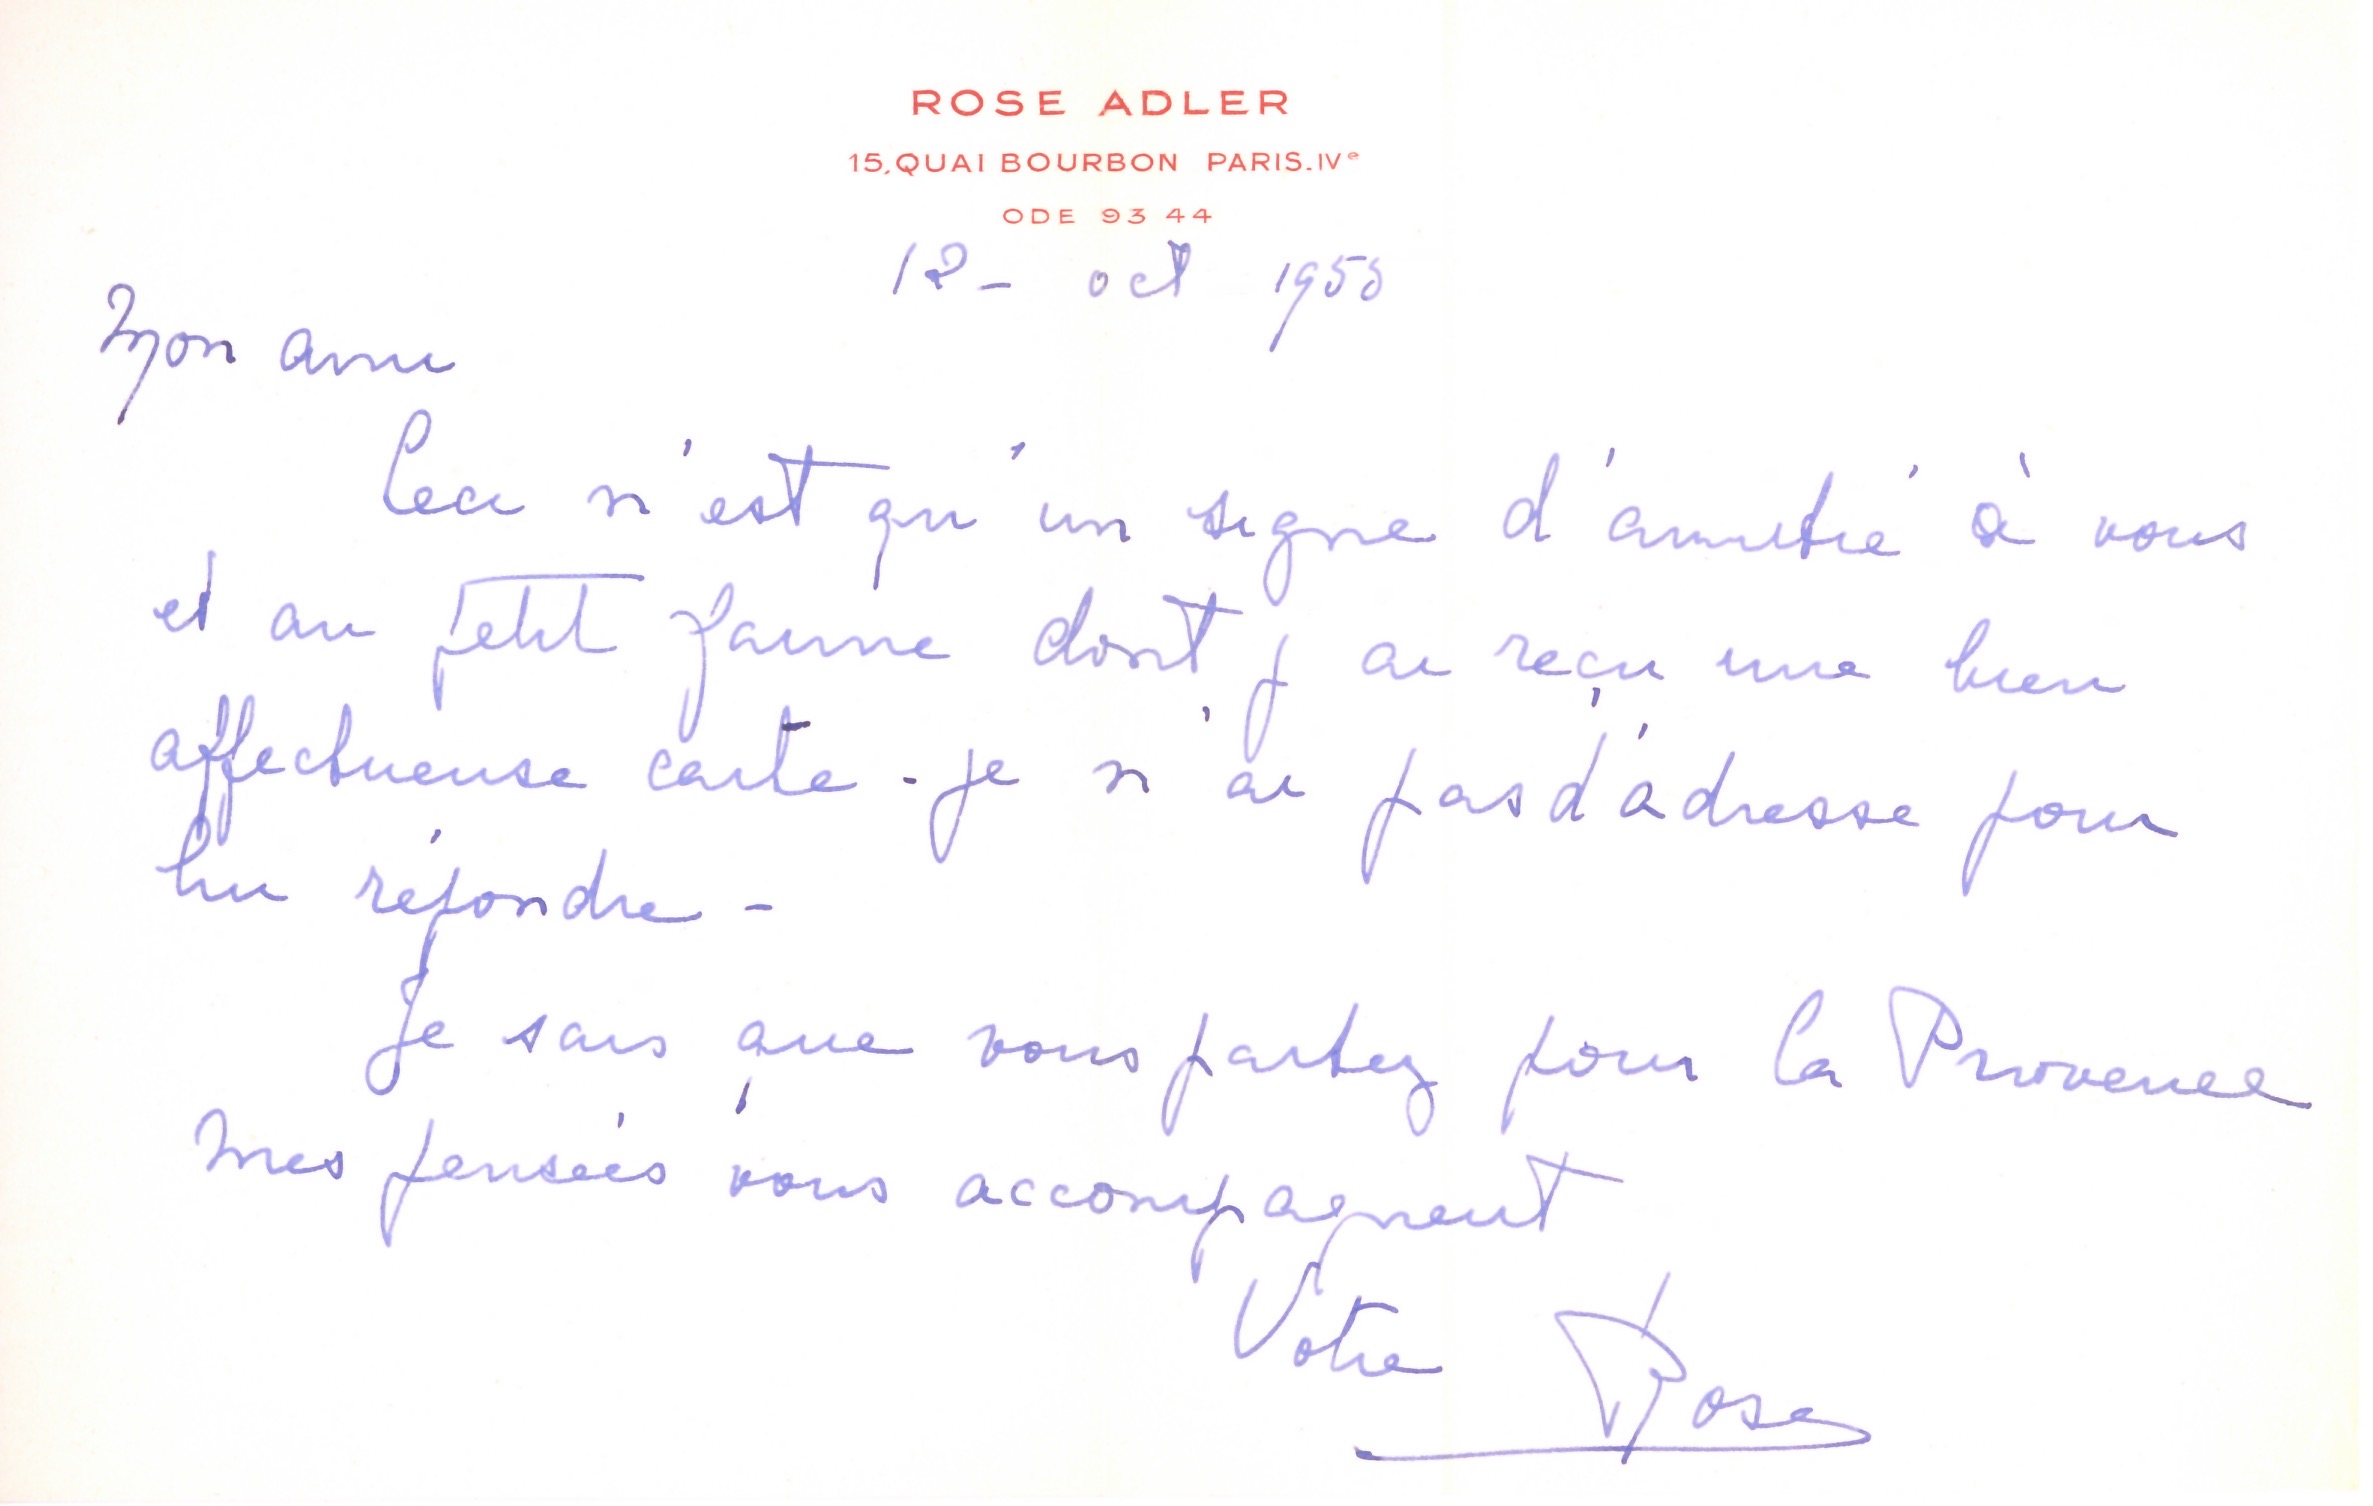 ROSE ADLER
15, QUAI BOURBON PARIS. IVe
ODE 93 44
12 - oct 1955
Mon ami
Ceci n'est qu'un signe d'amitié à vous
et au petit dont j'ai reçu une bien
affectueuse carte - je n'ai pas d'adresse pour
lui répondre -
Je sais que vous partez pour la Provence
Mes pensées vous accompagnent
Votre Rose